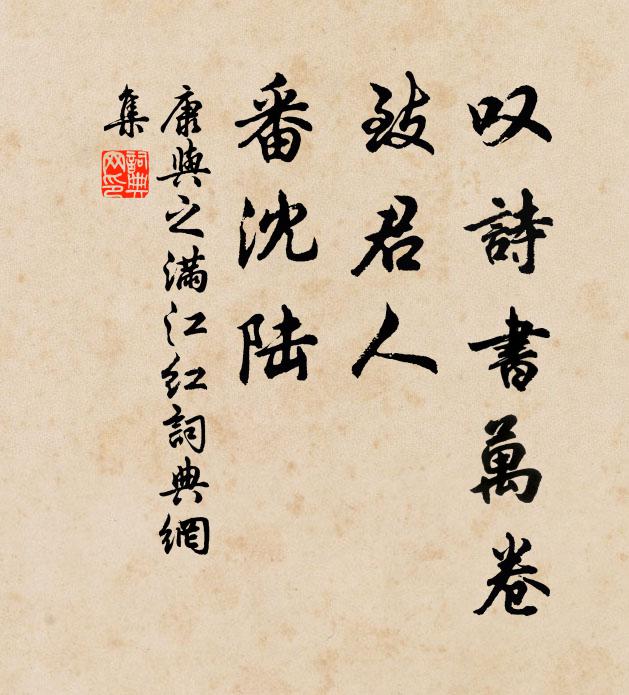 叹詩書萬卷
致君人
番沈陆
康與之满江红詞典網
集
詞典
网印